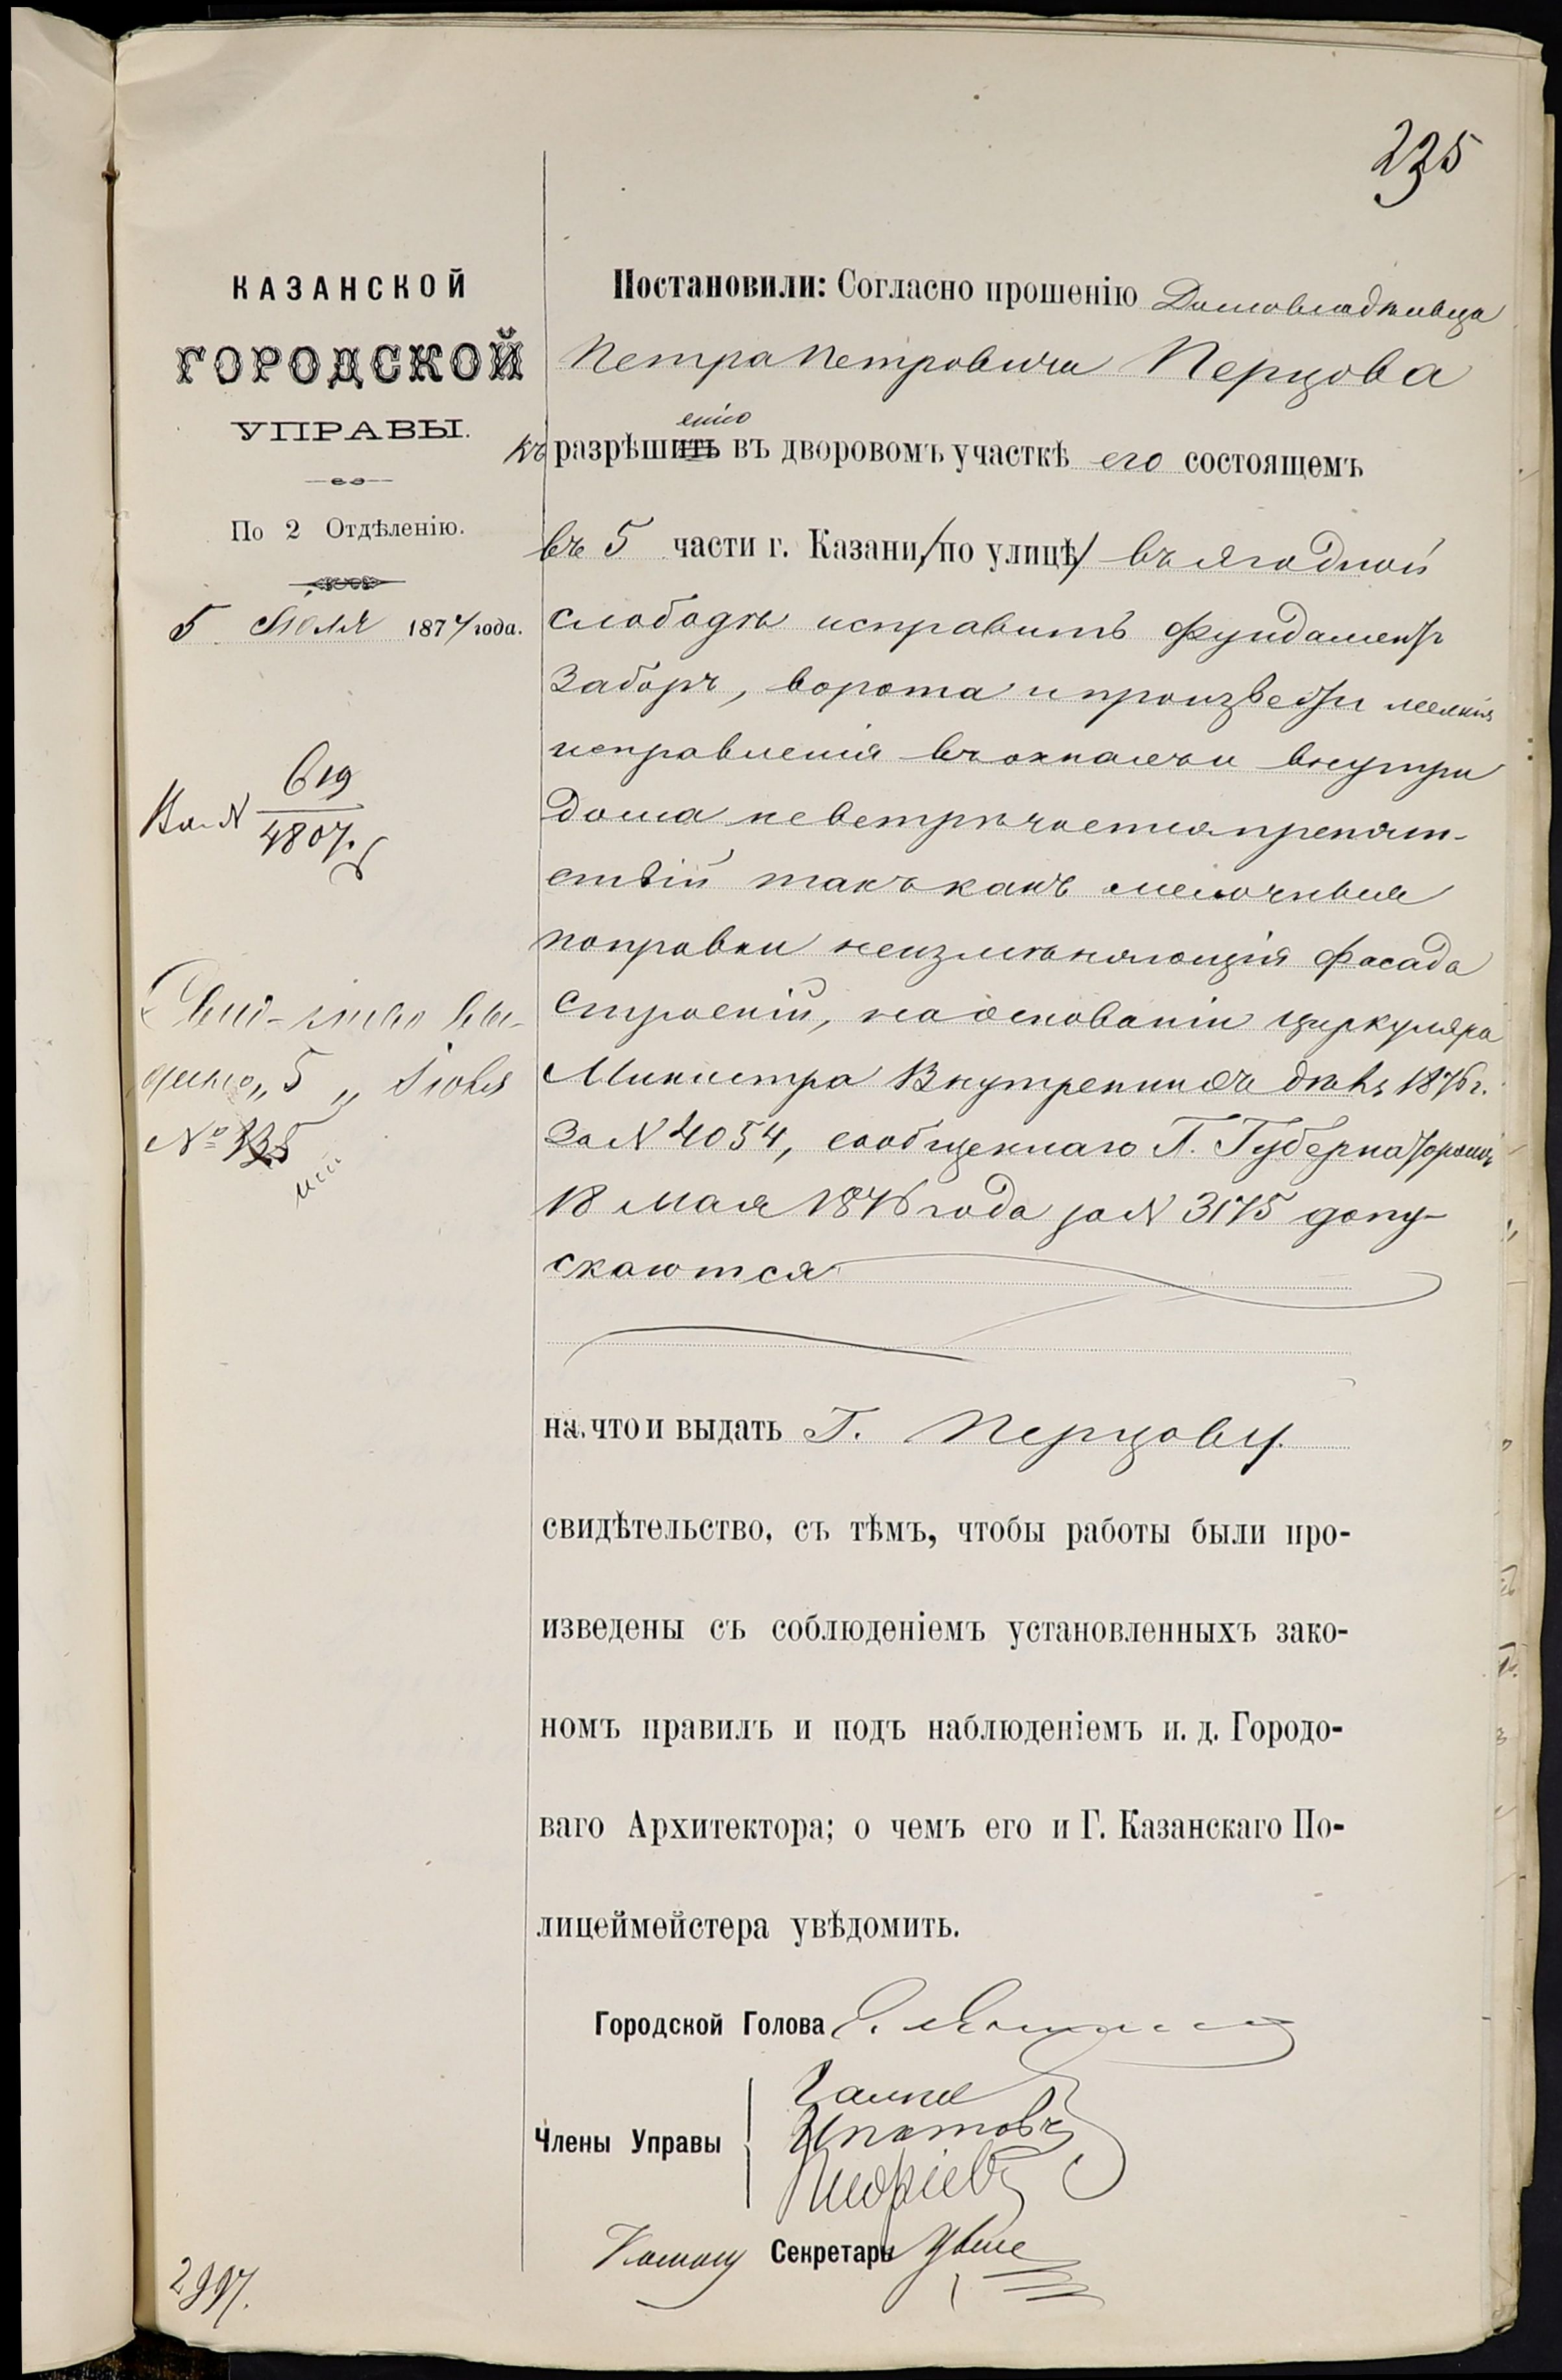 235
КАЗАНСКОЙ
ГОРОДСКОЙ
УПРАВЫ.
По 2 Отдѣленію.
5 Іюля 1877 года.
Ко N 619
4807.
Свид-ство вы-
дано „5„ Іюля
№ 335
2997.
Постановили: Согласно прошенію Домовладѣльца
Петра Петровича Перцова
къ разрѣшенію въ дворовомъ участкѣ его состоящемъ
въ 5 части г. Казани, /по улицѣ/ въ Ягодной
слободѣ исправить фундаментъ
заборъ, ворота и произвести мелкія
исправленія въ окнахъ и внутри
дома не встрѣчается препят-
ствій такъ какъ мелочныя
поправки неизмѣняющія фасада
строеній, на основаніи циркуляра
Министра Внутреннихъ дѣлъ 1876 г.
за N 4054, сообщеннаго Г. Губернаторомъ
18 Мая 1876 года за N 3175 допу-
скаются
на что и выдать Г. Перцову.
свидѣтельство, съ тѣмъ, чтобы работы были про-
изведены съ соблюденіемъ установленныхъ зако-
номъ правилъ и подъ наблюденіемъ и. д. Городо-
ваго Архитектора; о чемъ его и Г. Казанскаго По-
лицеймейстера увѣдомить.
Городской Голова
Члены Управы
Ипатовъ
Секретарь